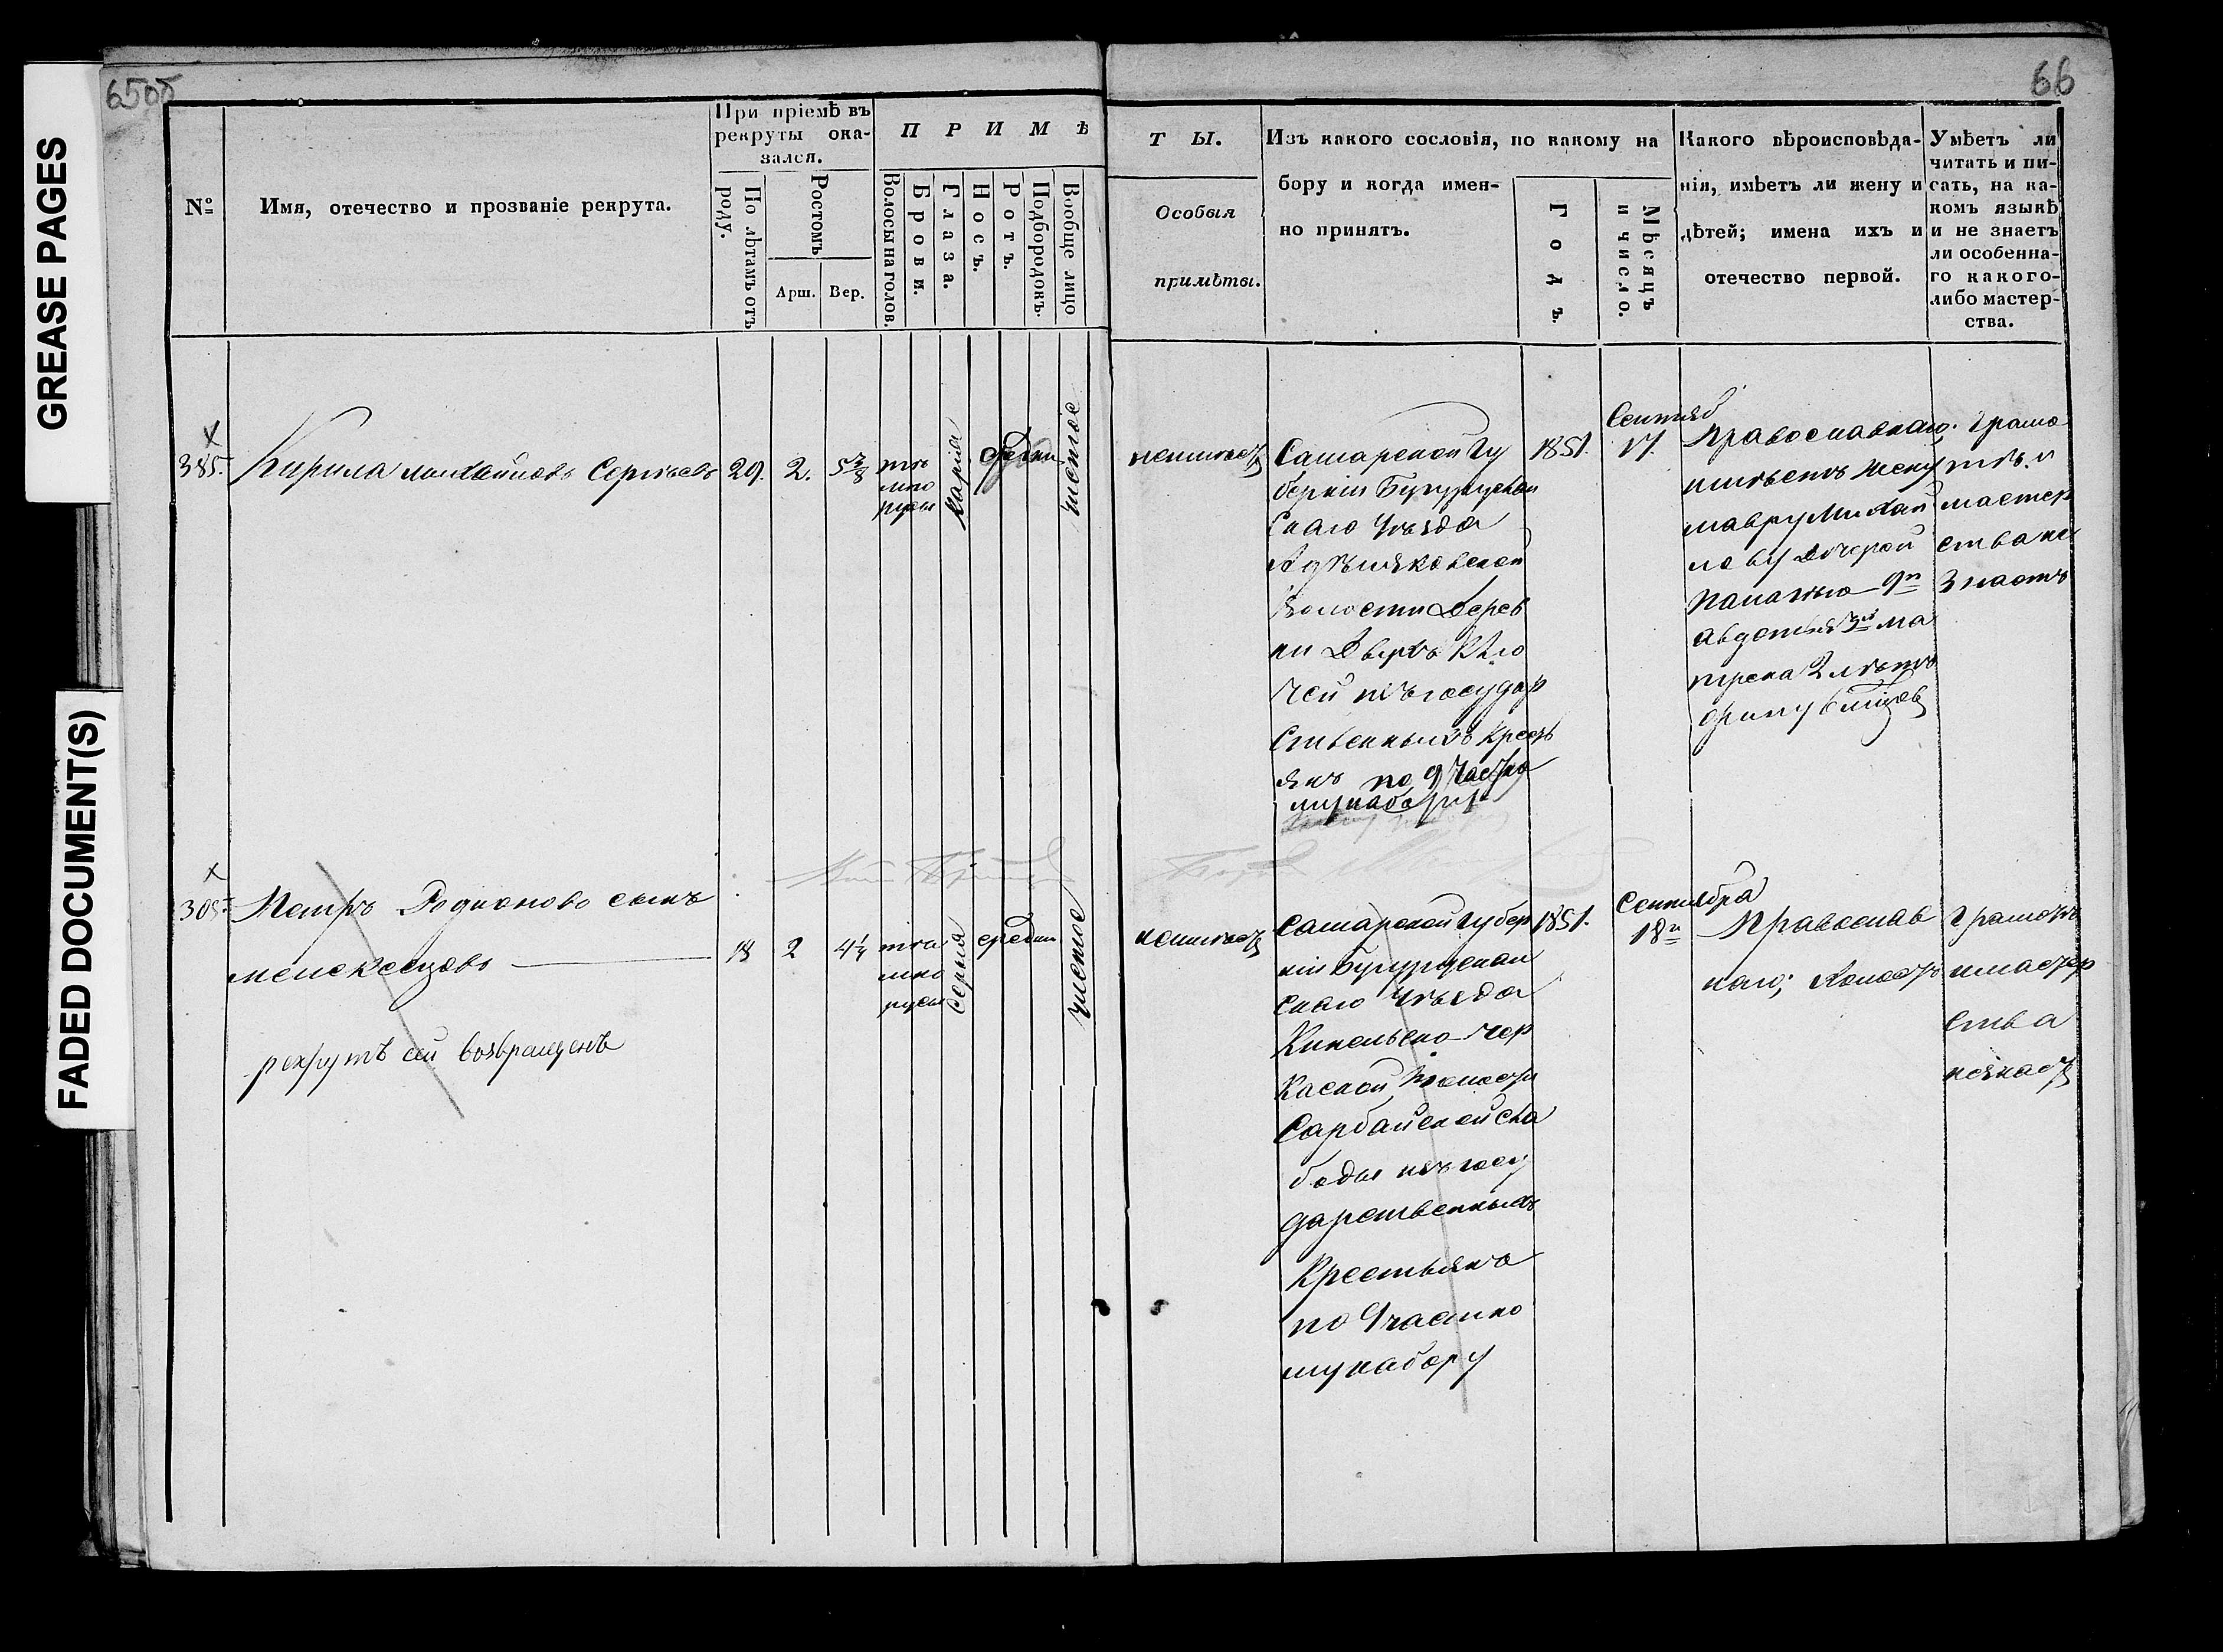 GREASE PAGES
FADED DOCUMENT(S)
65об
66
№
Имя, отечество и прозваніе рекрута.
При пріемѣ въ
рекруты ока-
зался.
По лѣтамъ отъ
роду.
Ростомъ
Арш. Вер.
П Р И М Ѣ
Волосы на голов.
Брови.
Глаза.
Носъ.
Ротъ.
Подбородокъ.
Вообще лицо
Т Ы.
Особыя
примѣты.
Изъ какого сословія, по какому на
бору и когда имен-
но принятъ.
Годъ.
Мѣсяцъ
и число.
Какого вѣроисповѣда-
нія, имѣетъ ли жену и
дѣтей; имена ихъ и
отечество первой.
Умѣетъ ли
читать и пи-
сать, на ка-
комъ языкѣ
и не знаетъ
ли особенна-
го какого-
либо мастер-
ства.
385.
Кирила Михайловъ Сергѣевъ
29.
2.
5 7/8
тѣ
мно
русы
карія
средни
чистое
неимѣетъ
Самарской Гу
берніи Бугуруслан
скаго Уѣзда
Волости Дерев
ни Двухъ Клю
чей изъ государ
ственныхъ крест
янъ по 9 частно
му набору
1851.
Сентяб
17.
Православнаго;
имѣетъ жену
мавру Михай
лову дочерей
авдотья ма
трена 2 лѣтъ
Грамо
тѣ и
мастер
ства не
знаетъ
Петръ Родионовъ сынъ
мелекесцовъ
рекрутъ сей возвращенъ
18
2
4 1/4
тѣ
мно
русы
серыя
средни
чистое
неимѣетъ
Самарской Губер
ніи Бугуруслан
скаго Уѣзда
Кинельско-Чер
каской Волости
Сарбайской сла
боды изъ госу
дарственныхъ
Крестьянъ
по 9 частно
му набору
1851.
Сентября
18
Православ
наго; холостъ
Грамотѣ
и мастер
ства
незнаетъ